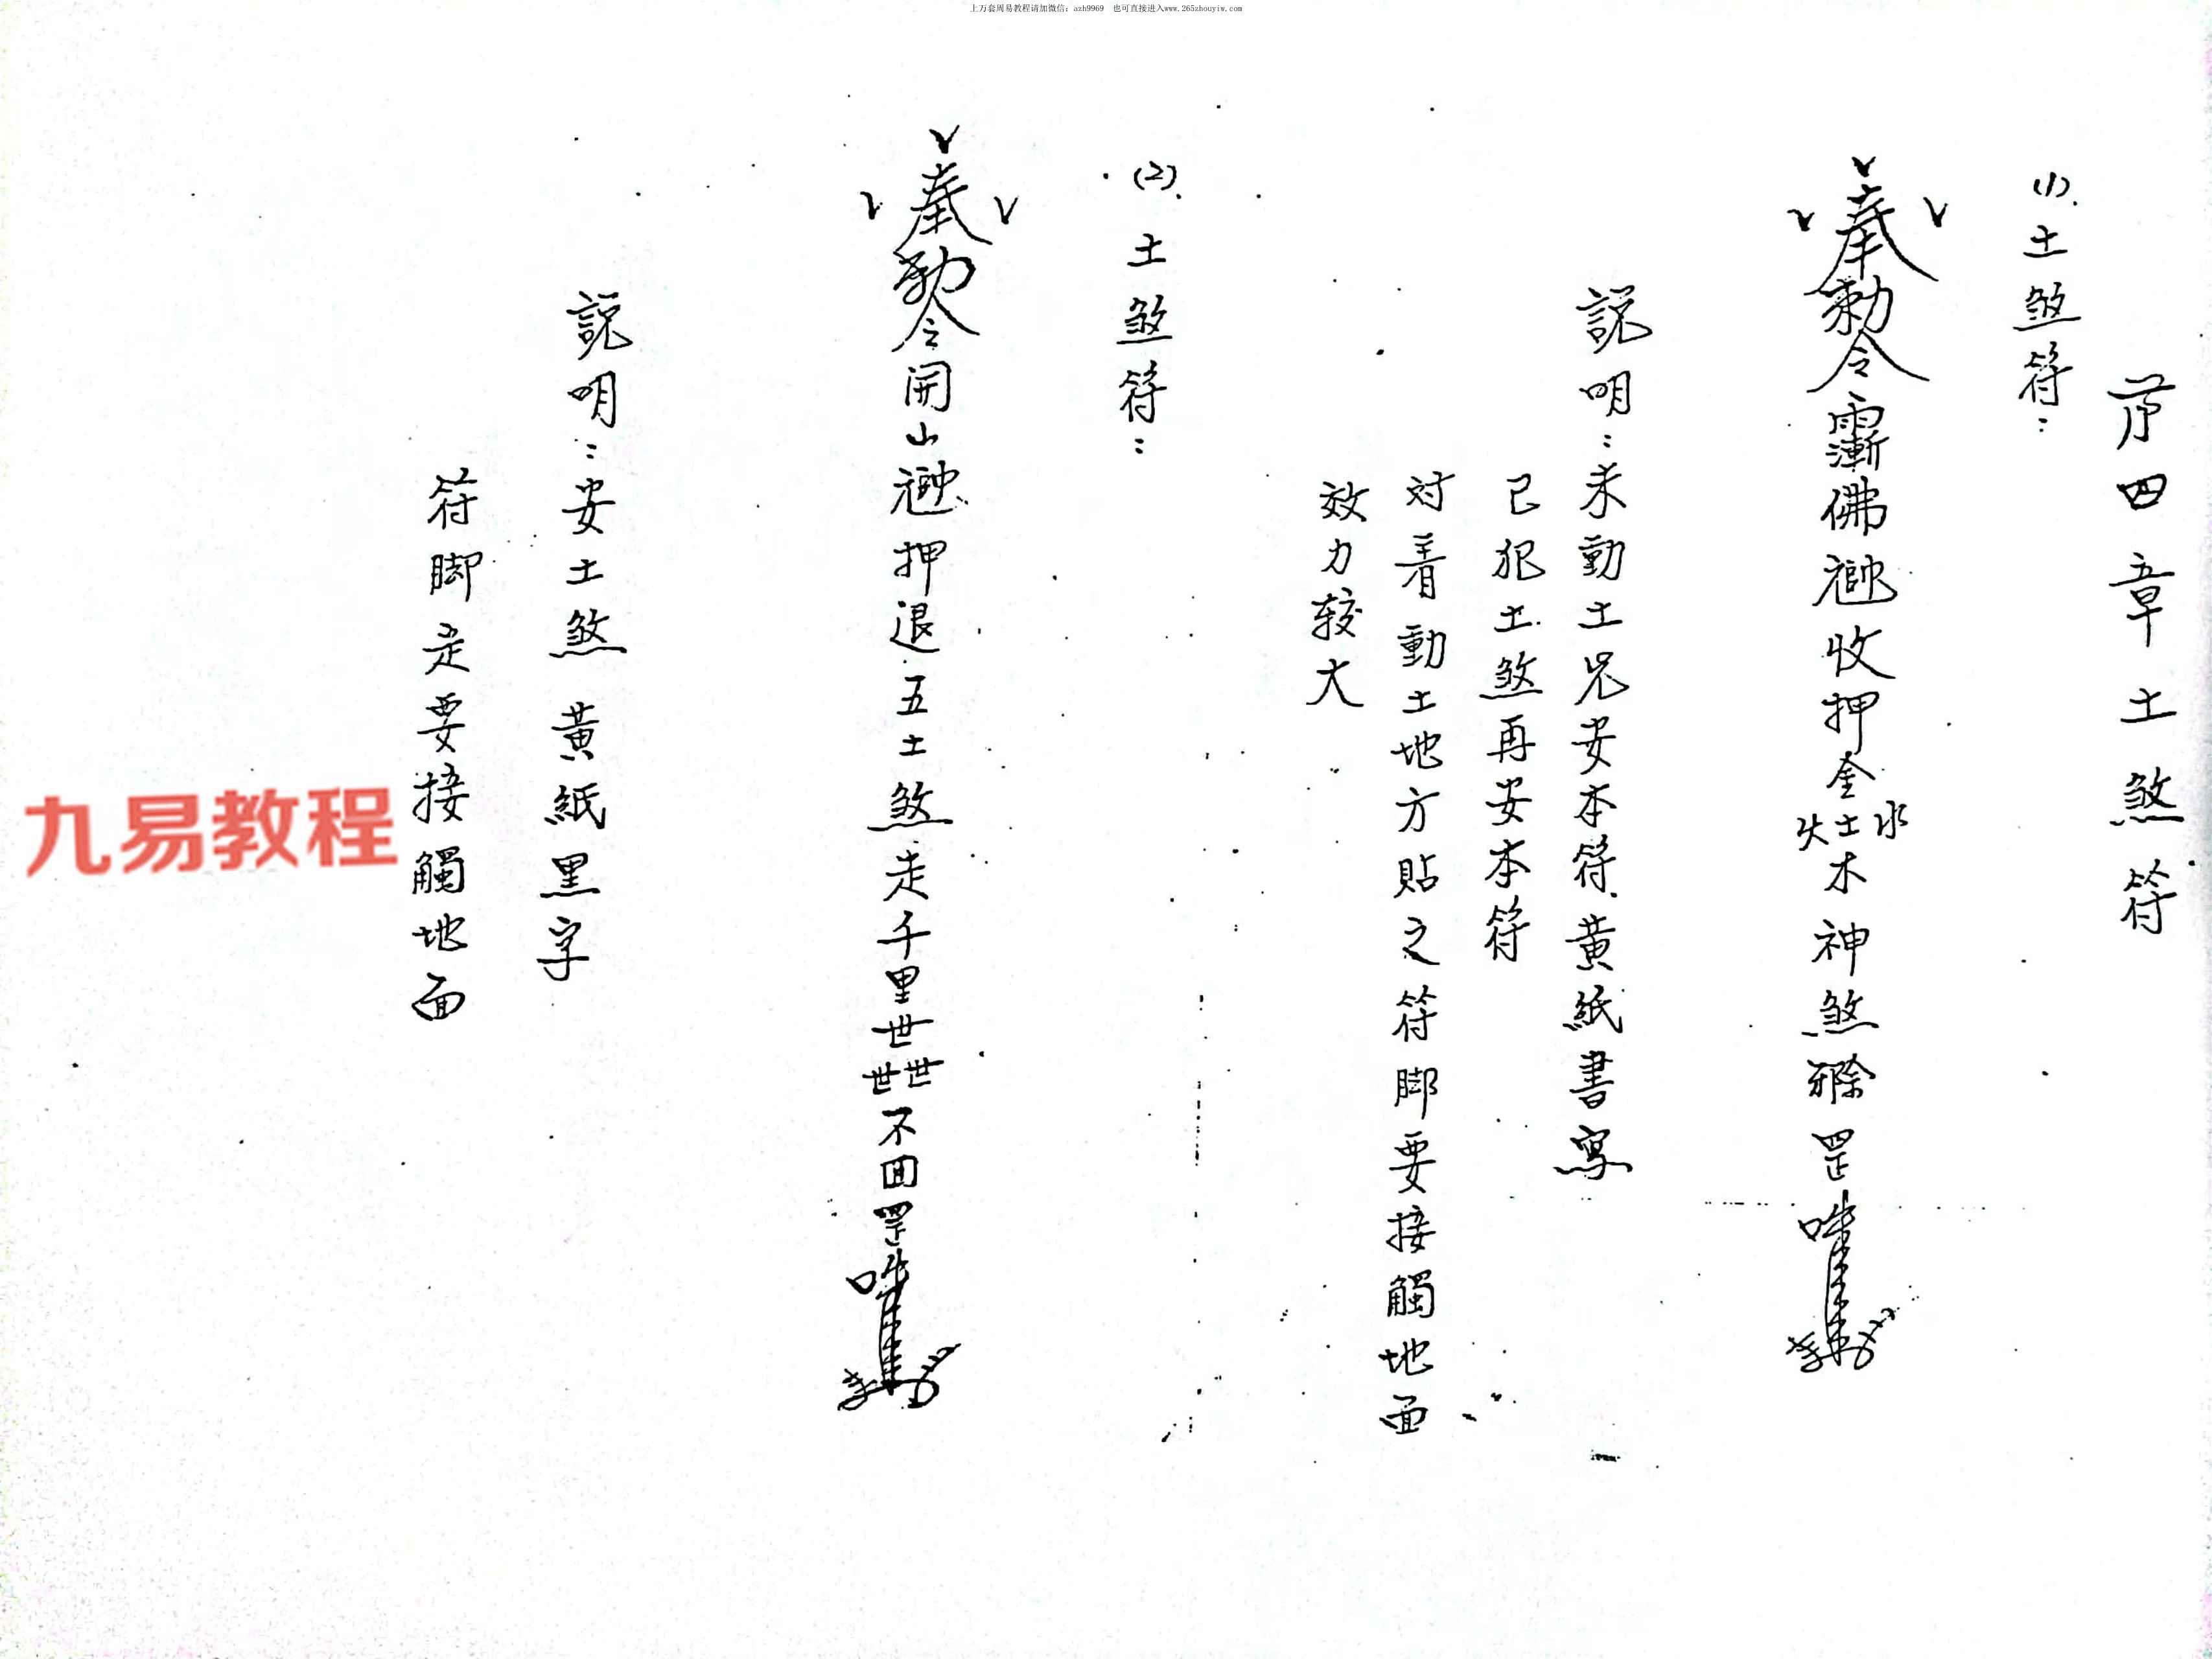 上万套周易教程请加微信：azh9969 也可直接进入www.265zhouyiw.com
第四章土煞符
(1).土煞符：
奉勅令佛收押金水土火木神煞罡
説明：未動土先安本符黃紙書寫
已犯土煞再安本符
对着動土地方貼之符脚要接觸地面
效力较大
(2).土煞符：
奉勅令開山押退五土煞走千里世世世不回罡
説明：安土煞 黃紙黑字
符脚走要接觸地面
九易教程